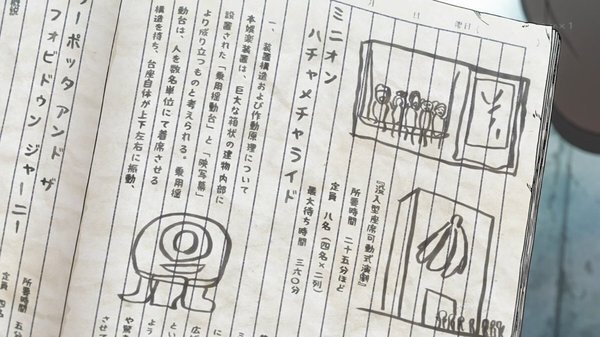 月 日 曜日（
×1
ミニオン
ハチャメチャライド
一、装置構造および作動原理について
本娯楽装置は、巨大な箱状の建物内部に
設置された「乗用揺動台」と「映写幕」
より成り立つものと考えられる。乗用揺
動台は、人を数名単位にて着席させる
構造を持ち、台座自体が上下左右に振動、
『没入型座席可動式演劇』
所要時間 二十五分ほど
定員 八名（四名×二列）
最大待ち時間 三六〇分
リーポッタ アンド ザ
フォビドゥン ジャーニー
所要時間 五分
定員 四名